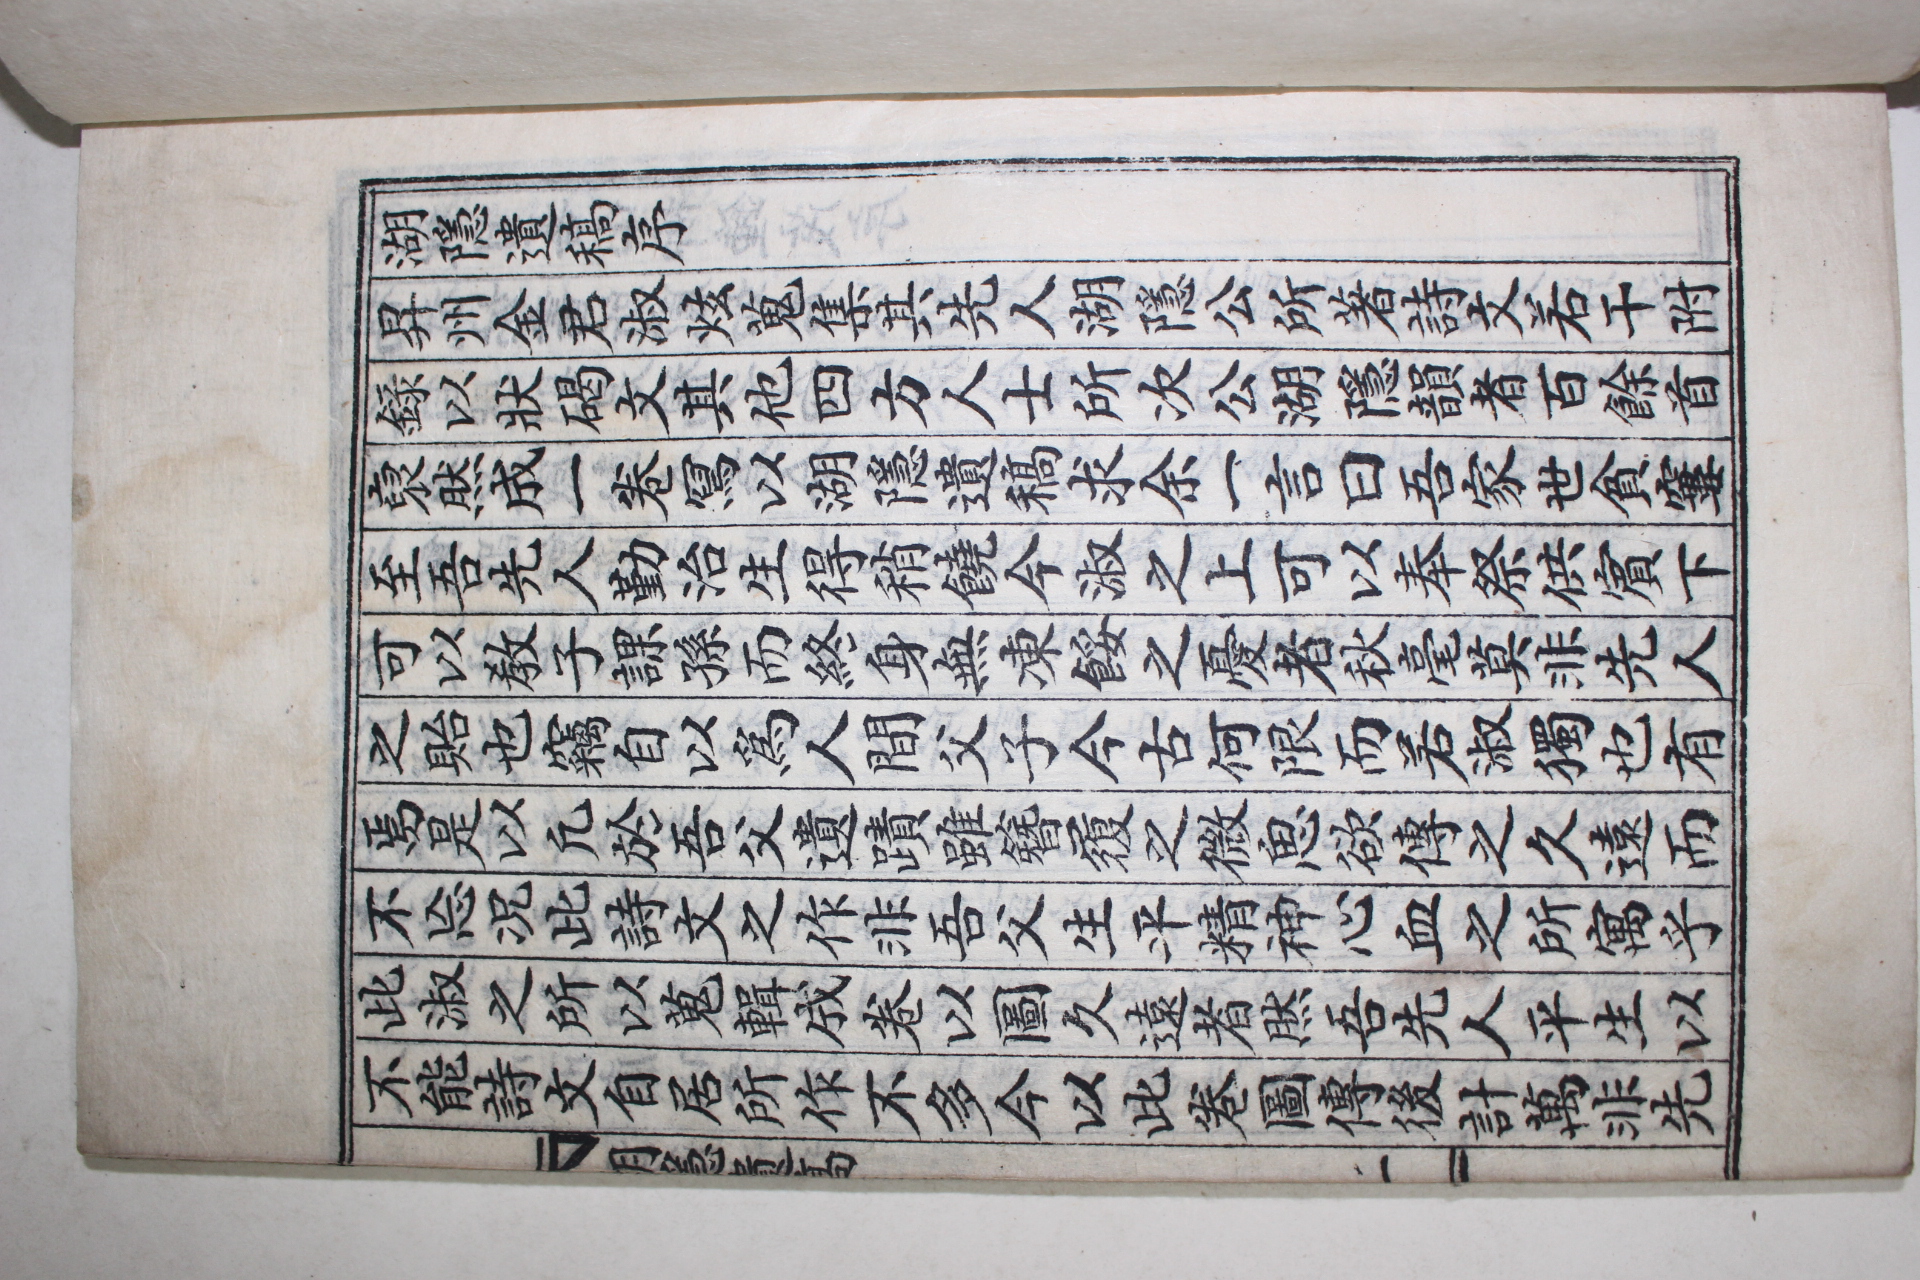 湖隱遺稿序
昇州金君淑炫蒐集其先人湖隱公所著詩文若干附
錄以狀碣文其他四方人士所次公湖隱韻者百餘首
裒然成一卷寫以湖隱遺稿求余一言曰吾家世貧窶
至吾先人勤治生得稍饒今淑之上可以奉祭供賓下
可以教子課孫而終身無凍餒之憂者秋毫莫非先人
之貽也竊自以爲人間父子今古何限而若淑獨也有
焉是以凡於吾父遺蹟雖簪履之微思欲傳之久遠而
不忘况此詩文之作非吾父生平精神心血之所寓乎
此淑之所以蒐輯成卷以圖久遠者然吾先人平生以
不能詩文自居所作不多今以此卷圖傳後計萬非先